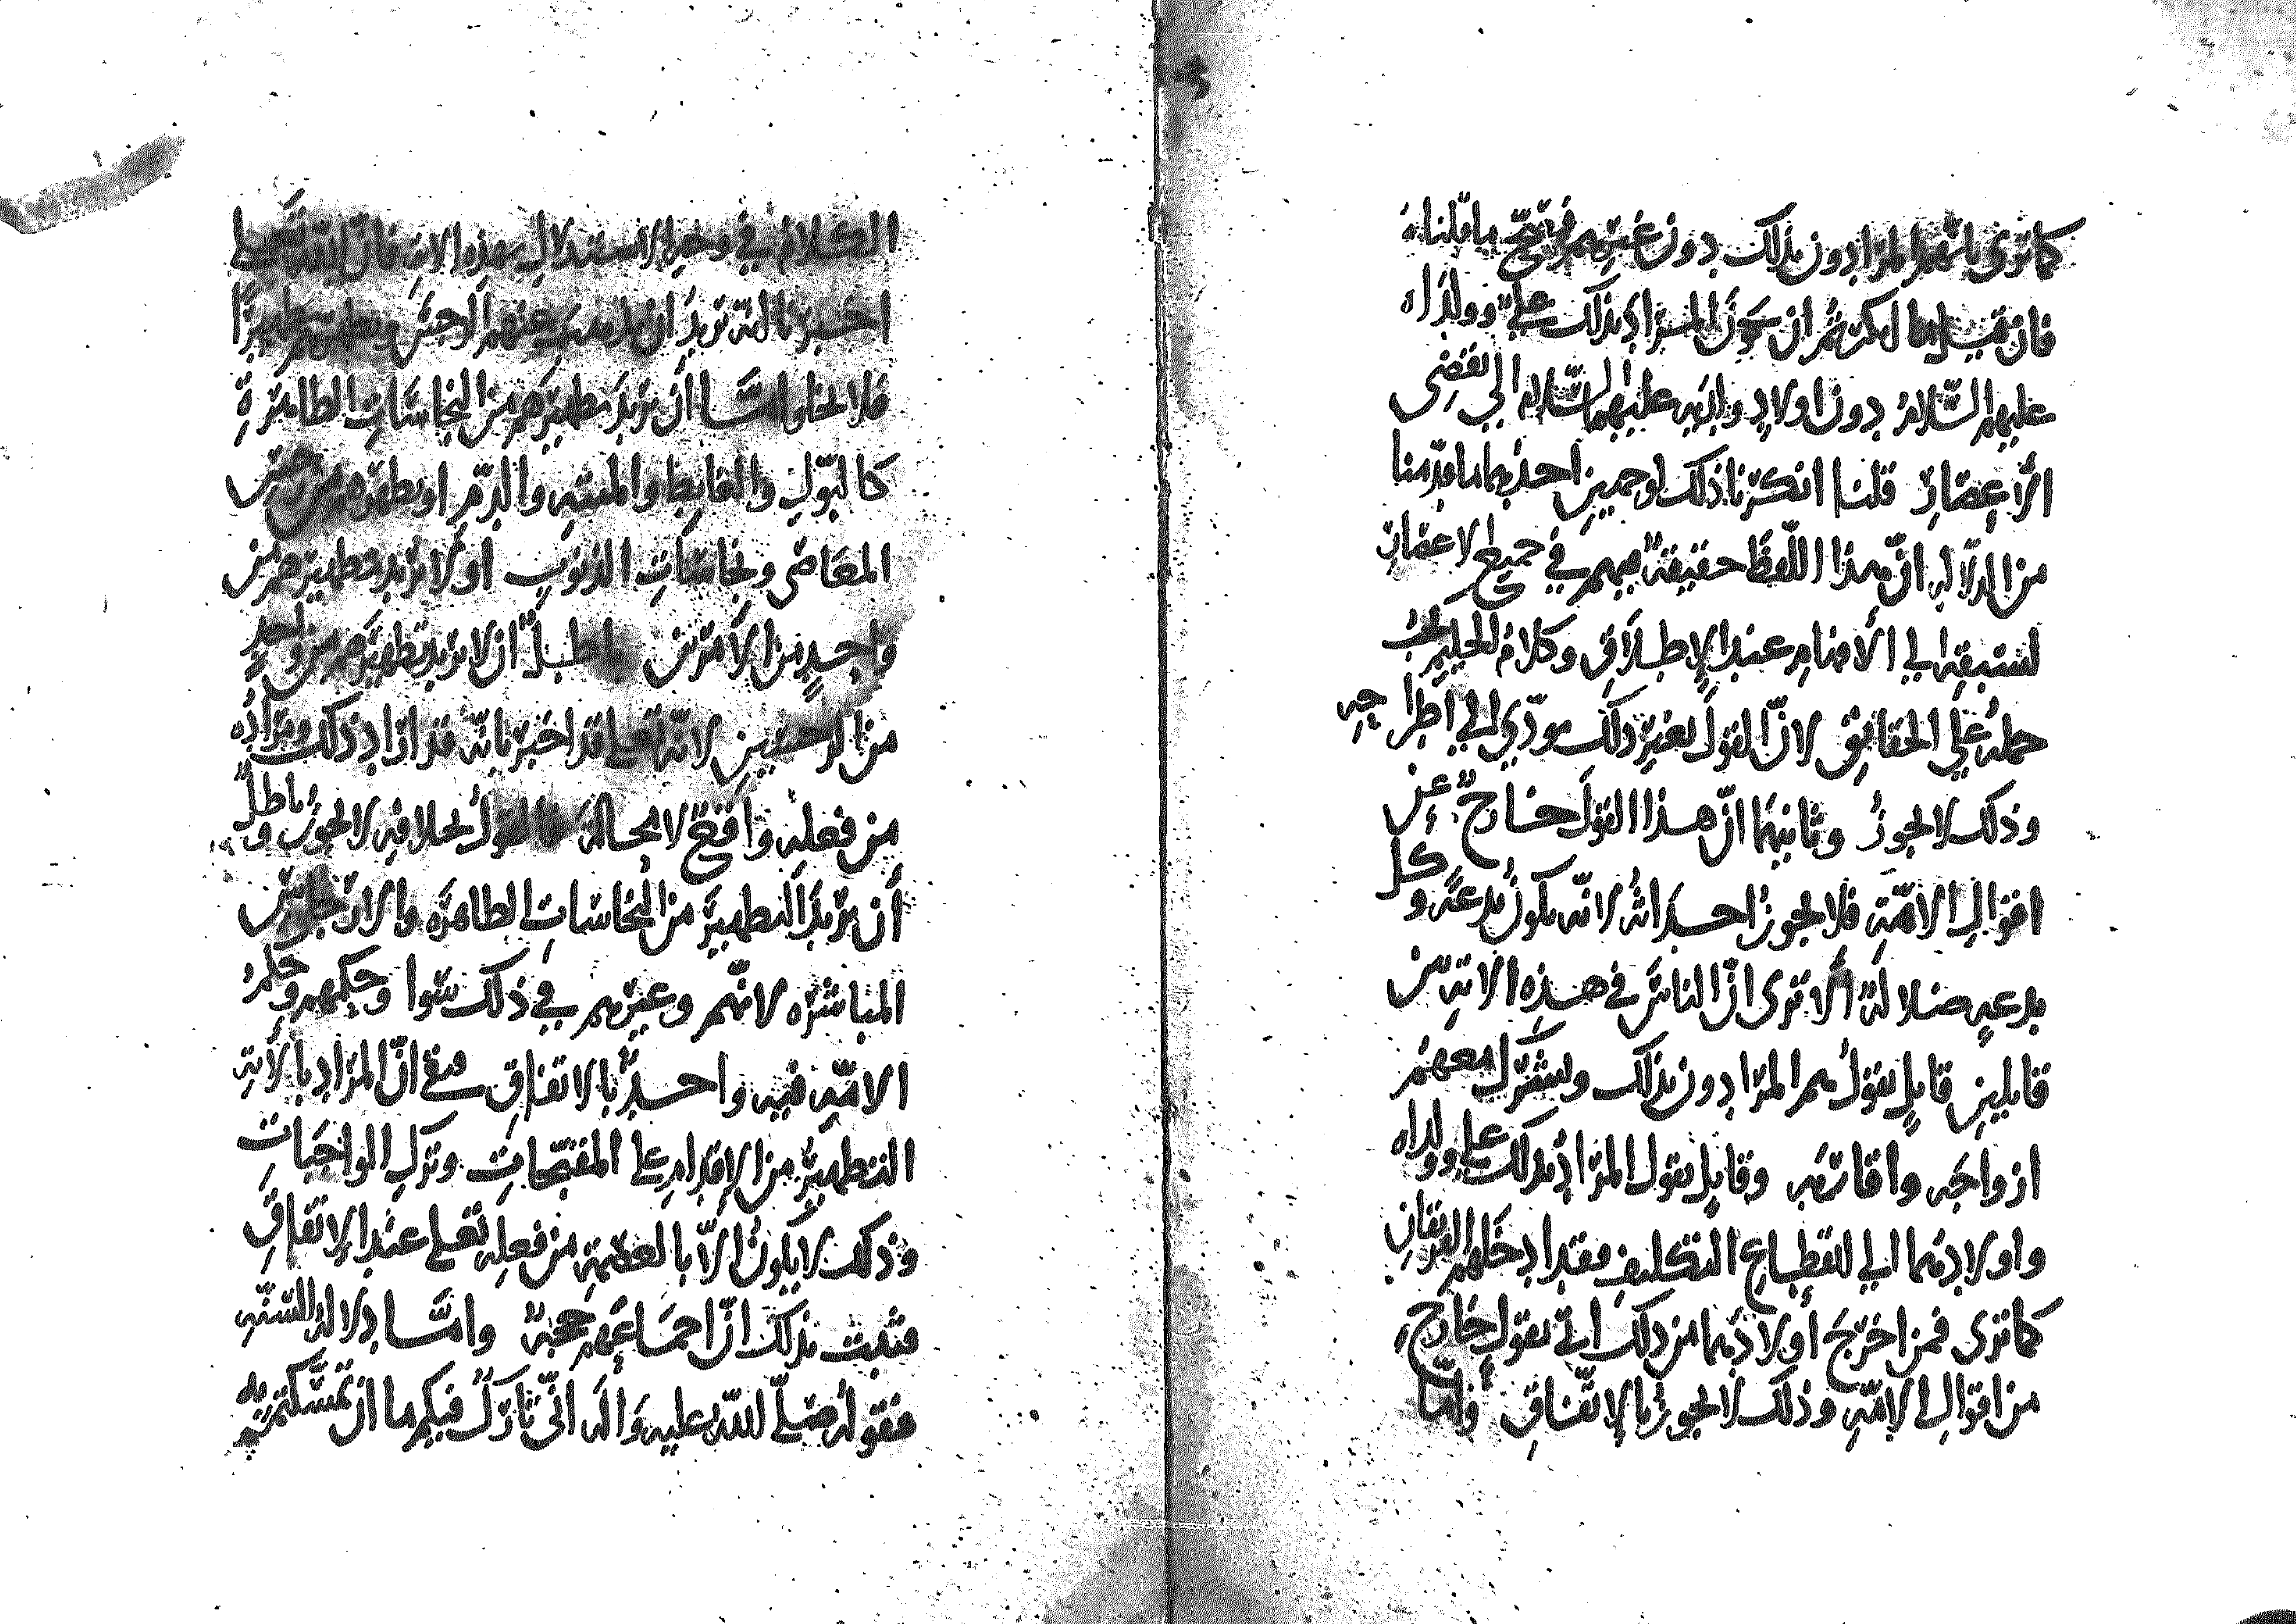 كما ترى بانهم المراد ون بذلك دون غيرهم فصح ما قلناه
فان قيل ما انكرتم ان يكون المراد بذلك علي وولداه
عليهم السلام دون اولاد ولديه عليهما السلام الى تقضي
الأعصار قلنا انكرنا ذلك لوجهين احدهما ما قدمنا
من الدلالة ان هذا اللفظ حقيقة فيهم في جميع الاعصار
لسبقه الى الأفهام عند الإطلاق وكلام الحكيم يجب
حمله على الحقائق لان القول بغير ذلك مودي الى اطراحه
وذلك لا يجوز وثانيهما ان هذا القول خارج عن
اقوال الامة فلا يجوز احداثه لانه يكون بدعة وكل
بدعة ضلالة ألا ترى ان الناس في هذه الاية من
قايلين قايل يقول هم المراد ون بذلك ويشرك معهم
ازواجه واقاربه وقايل يقول المراد بذلك علي وولداه
واولادهما الى انقطاع التكليف فقد ادخلهم الفريقان
كما ترى فمن اخرج أولادهما من ذلك اتى بقول خارج
من اقوال الامة وذلك لا يجوز بالاتفاق وأما
الكلام في وجه الاستدلال بهذه الاية فان الله تعالى
اخبرنا انه يريد ان يذهب عنهم الرجس ويطهرهم تطهيرا
فلا يخلوا اما أن يريد تطهيرهم من النجاسات الظاهرة
كالبول والغايط والميتة والدم او يطهرهم من رجس
المعاصي ونجاسات الذنوب او لا يريد تطهيرهم من
واحد من الأمرين باطل ان لا يريد تطهيرهم من واحد
من الرجسين لانه تعالى قد اخبر بانه قد اراد ذلك ومراده
من فعله واقع لا محالة فالقول بخلافه لا يجوز وباطل
أن يريد التطهير من النجاسات الظاهرة والارجاس
المباشرة لانهم وغيرهم في ذلك سوا وحكمهم وحكم
الامة فيه واحد بالاتفاق فبقي ان المراد بالأية
التطهير من الإقدام على المقبحات وترك الواجبات
وذلك لا يكون إلا بالعصمة من فعله تعالى عند الاتفاق
فثبت بذلك ان اجماعهم حجة واما دلالة السنة
فقوله صلى الله عليه وآله اني تارك فيكم ما ان تمسكتم به